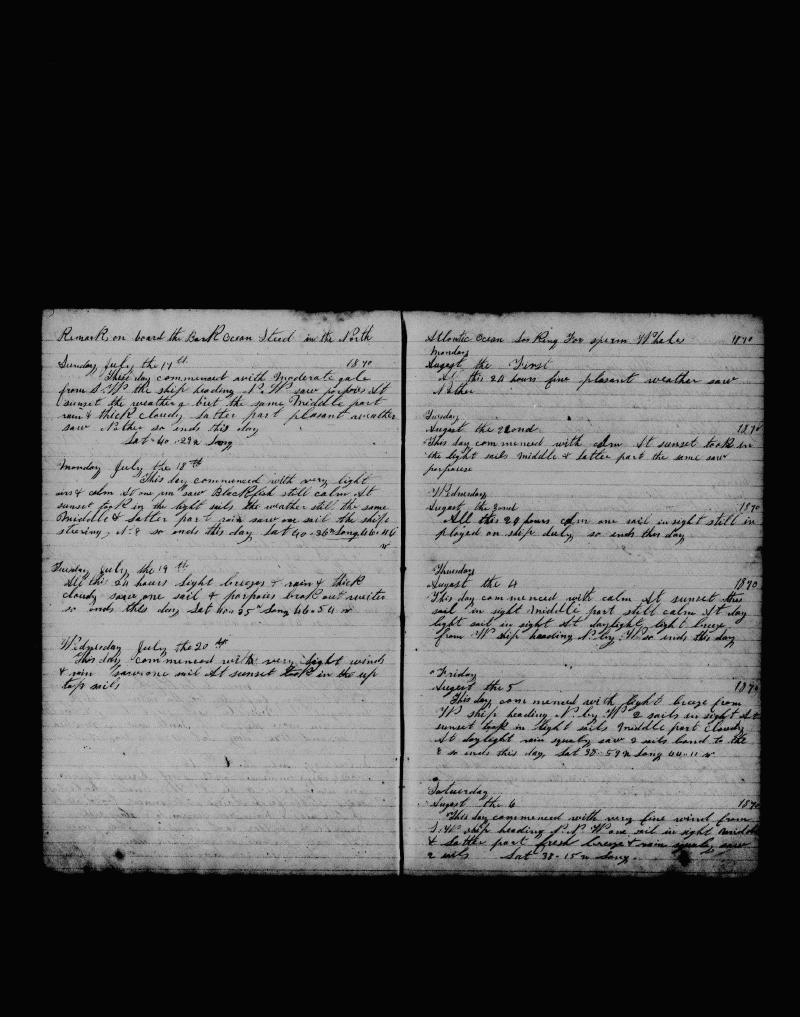 Remark on board the Bark Ocean Steed in the North
Sunday July the 17th 1870
These day commenced with Moderate gale
from S.W the ship heading N.W saw porpoises At
sunset the weather a birt the same Middle part
rain & thick cloudy latter part plasant weather
saw Nother so ends this day
Lat 40..29 n Long
Monday July the 18th
This day commenced with very light
airs & calm At one pm saw Blackfish still calm At
sunset took in the light sails the weather still the same
Middle & latter part rain saw one sail the ship
stearing N.E so ends this day Lat 40-36 n Long 46-46
w
Tuesday July the 19th
All this 24 hours light breezes & rain & thick
cloudy saw one sail & porpoises brok out waiter
so ends this day Lat 40-35 n Long 46-54 w
Wednesday July the 20th
This day commenced with very light winds
& rain saw one sail At sunset took in the up
top sails
Atlantic Ocean Looking For sperm Whale 1870
Monday
August the First
All this 24 hours fine plasant weather saw
Nother
Tuesday
August the 22ond 1870
This day commenced with calm At sunset took in
the light sails middle & latter part the same saw
porpoises
Wednesday
August the 3ond 1870
All this 24 hours calm one sail in sight still in
ployed on ship duty so ends this day
Thursday
August the 4 1870
This day commenced with calm At sunset three
sail in sight middle part still calm At day
light sail in sight At daylight light breeze
from W ship heading N.by.W so ends this day
Friday
August the 5 1870
This day commenced with light breeze from
W ship heading N. by W 2 sails in sight At
sunset took in light sails middle part cloudy
At daylight rain squaly saw 2 sails bond to the
E so ends this day Lat 38-59 n Long 44-11 w
Saturday
August the 6 1870
This day commenced with very fine wind from
S.W ship heading N.N.W one sail in sight middle
& latter part fresh breeze & rain squaly saw
2 sails Lat 38-15 n Long.